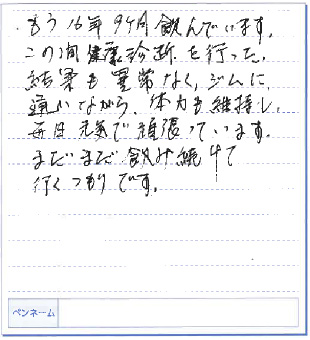 ・もう16年9ケ月飲んでいます。
この間健康診断を行った。
結果も異常なく、ジムに
通いながら、体力も維持し、
毎日元気で頑張っています。
まだまだ飲み続けて
行くつもりです。
ペンネーム